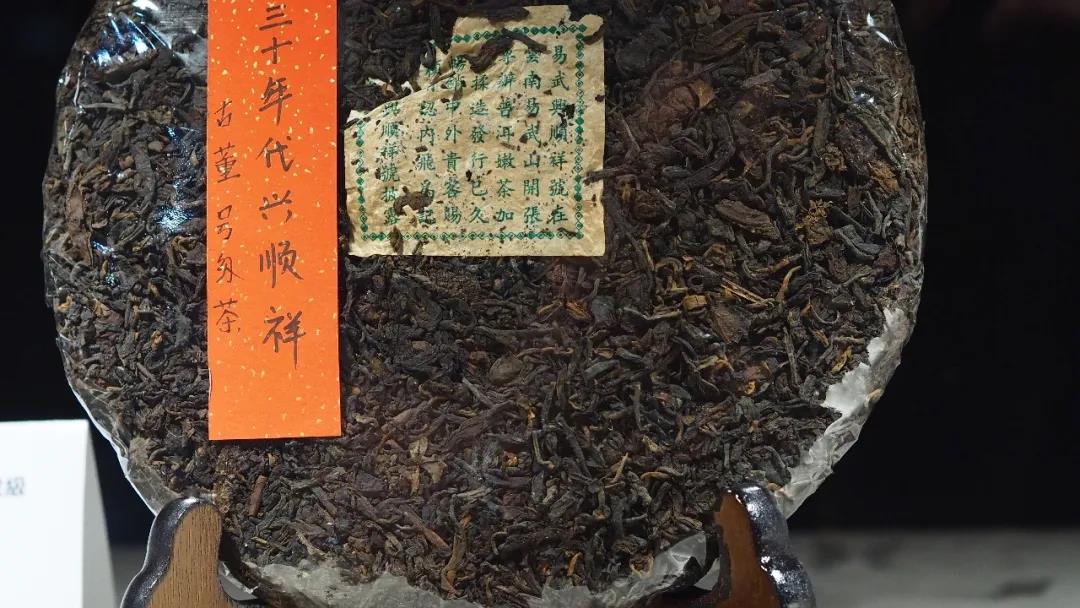 三十年代兴顺祥
古董号级茶
易武興順祥號在
雲南易武山開張
辦普洱嫩茶加
採造發行已久
銷中外貴客賜
認內飛為記
興順祥號披露
級